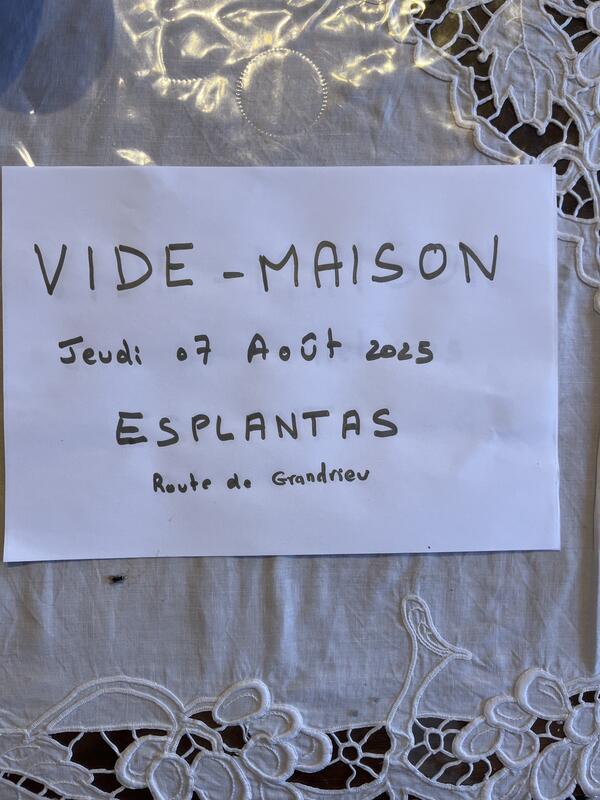 VIDE - MAISON
Jeudi 07 Août 2025
ESPLANTAS
Route de Grandrieu